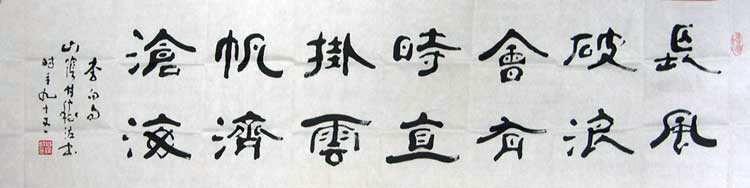 長風
破浪
會有
時直
掛雲
帆濟
滄海
李白句
山陰
时年九十